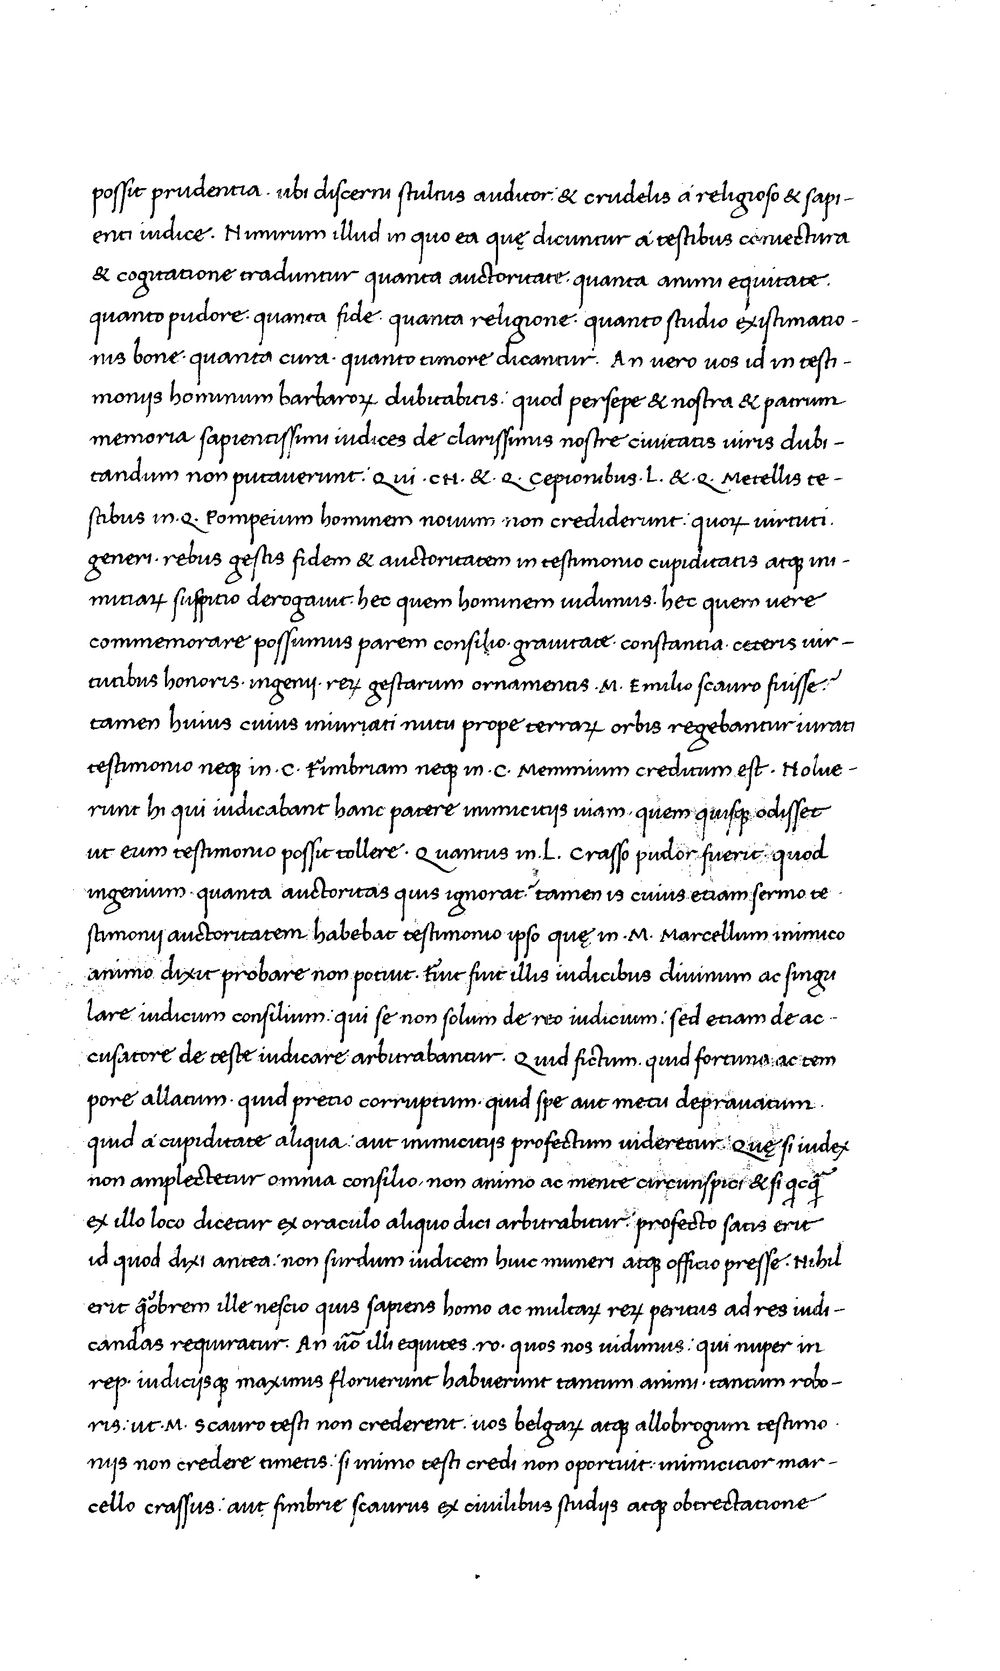 possit prudentia · ubi discerni stultus auditor: & crudelis á religioso & sapi-
enti iudice. Nimirum illud in quo ea quę dicuntur á testibus coniectura
& cogitatione traduntur quanta auctoritate · quanta animi equitate.
quanto pudore · quanta fide · quanta religione: quanto studio existimatio-
nis bone · quanta cura · quanto timore dicantur. An vero vos id in testi-
moniis hominum barbaroꝝ dubitabitis: quod persepe & nostra & patrum
memoria sapientissimi iudices de clarissimis nostre civitatis viris dubi-
tandum non putaverunt: Qui · CN. & · Q. Cepionibus · L. & · Q. Metellis te-
stibus in · Q. Pompeium hominem novum non crediderunt: quoꝝ virtuti.
generi · rebus gestis fidem & auctoritatem in testimonio cupiditatis atqꝫ ini-
micitiaꝝ suspitio derogavit. hec quem hominem vidimus · hec quem vere
commemorare possumus parem consilio · gravitate · constantia · ceteris vir-
tutibus honoris · ingenii · reꝝ gestarum ornamentis · M. Emilio scauro fuisse?
tamen huius cuius iniuriati nutu prope terraꝝ orbis regebantur iurati
testimonio neqꝫ in · C. Fimbriam neqꝫ in · C. Memmium creditum est. Nolue-
runt hi qui iudicabant hanc patere inimicitiis viam · quem quisqꝫ odisset
ut eum testimonio possit tollere. Quantus in · L. Crasso pudor fuerit: quod
ingenium · quanta auctoritas quis ignorat? tamen is cuius etiam sermo te
stimonii auctoritatem habebat testimonio ipso quę in · M. Marcellum inimico
animo dixit probare non potuit. Fuit fuit illis iudicibus divinum ac singu
lare iudicum consilium: qui se non solum de reo iudicium: sed etiam de ac-
cusatore de teste iudicare arbitrabantur. Quid fictum. quid fortuna ac tem
pore allatum · quid precio corruptum · quid spe aut metu depravatum.
quid á cupiditate aliqua: aut inimicitiis profectum videretur. Quę si iudex
non amplectetur omnia consilio · non animo ac mente circunspici & si qͥcqͣ̃
ex illo loco dicetur ex oraculo aliquo dici arbitrabitur: profecto satis erit
id quod dixi antea: non surdum iudicem huic muneri atqꝫ officio presse. Nihil
erit qͣ̃obrem ille nescio quis sapiens homo ac multaꝝ reꝝ peritus ad res iudi-
candas requiratur. An ūo illi equites · ro · quos nos vidimus: qui nuper in
rep · iudiciisqꝫ maximis floruerunt habuerunt tantum animi · tantum robo-
ris: ut · M. Scauro testi non crederent: vos belgaꝝ atqꝫ allobrogum testimo
niis non credere timetis: si inimo testi credi non oportuit: inimicitior mar-
cello crassus: aut fimbrie scaurus ex civilibus studiis atqꝫ obtrectatione